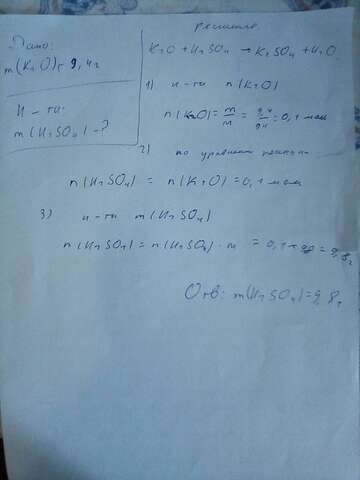 Дано:
m(K2O)=9,4г
Н-ти:
m(H2SO4)-?
решение
K2O + H2SO4 → K2SO4 + H2O
1) н-ти n(K2O)
n(K2O) = m/M = 9,4/94 = 0,1 моль
2) по уравнению реакции
n(H2SO4) = n(K2O) = 0,1 моль
3) н-ти m(H2SO4)
n(H2SO4) = n(H2SO4) · M = 0,1 × 98 = 9,8г
Отв: m(H2SO4)=9,8г